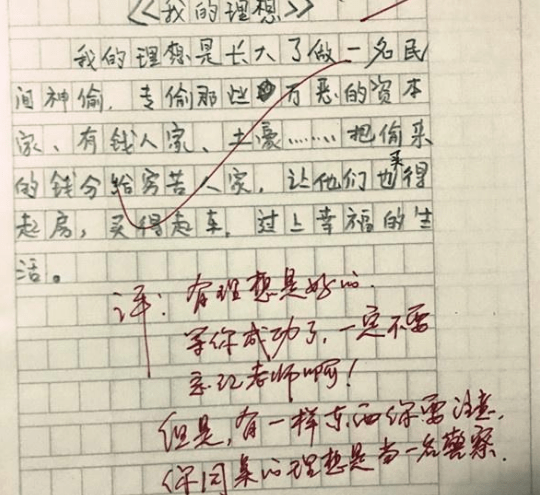 《我的理想》
我的理想是长大了做一名民
间神偷，专偷那些万恶的资本
家、有钱人家、土豪……把偷来
的钱分给穷苦人家，让他们也买得
起房，买得起车，过上幸福的生
活。
评：有理想是好的．
等你成功了，一定不要
忘记老师啊！
但是，有一样东西你要注意，
你同桌的理想是当一名警察．